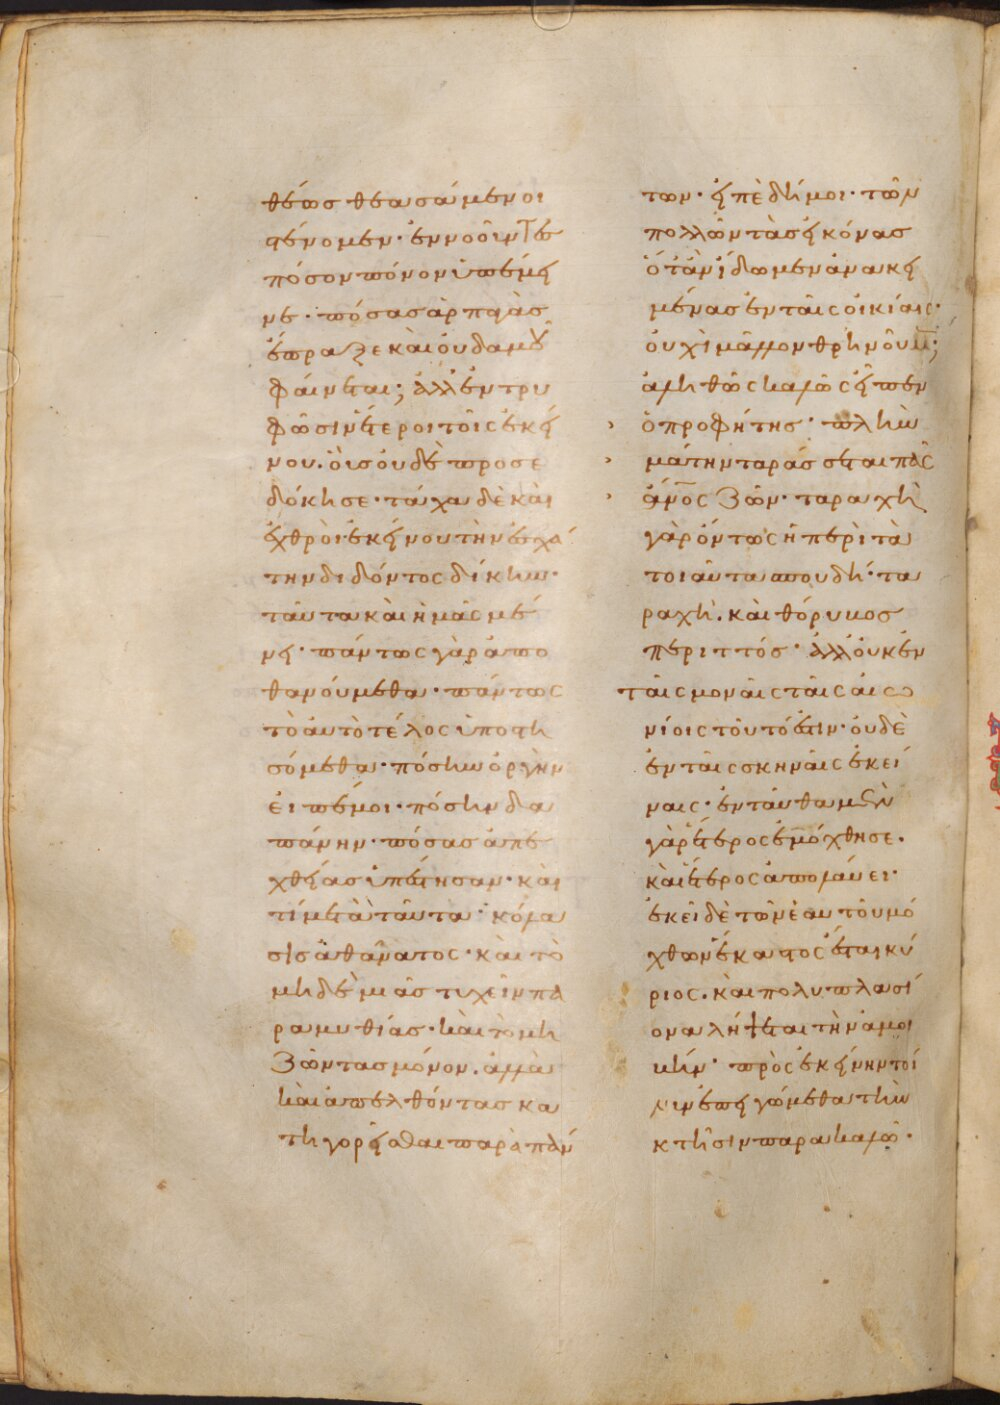 θέως θεασάμενοι
στένομεν· ἐννοοῦντες
πόσον πόνον ὑπέμει
νε· πόσας ἁρπαγὰς
ἥρπαζε καὶ οὐδαμοῦ
φαίνεται; ἀλλ' ἐντρυ
φῶσιν ἕτεροι τοῖς ἐκεί
νου. οἷς οὐδὲ προσε
δόκησε· τάχα δὲ καὶ
ἐχθροὶ ἐκείνου τὴν ἐσχά
την διδόντος δίκην·
ταῦτα καὶ ἡμᾶς μέ
νει· πάντως γὰρ ἀπο
θανούμεθα· πάντως
τὸ αὐτὸ τέλος ὑποστη
σόμεθα· πόσην ὀργὴν
εἰπέ μοι· πόσην δα
πάνην· πόσας ἀπε
χθείας ὑπέστησαν· καὶ
τί μετὰ ταῦτα· κόλα
σις ἀθάνατος· καὶ τὸ
μηδεμιᾶς τυχεῖν πα
ραμυθίας· καὶ τὸ μὴ
ζῶντας μόνον. ἀλλὰ
καὶ ἀπελθόντας κα
τηγορεῖσθαι παρὰ πάν
των· εἰπὲ δή μοι· τῶν
πολλῶν τὰς εἰκόνας
ὅταν ἴδωμεν ἀνακει
μένας ἐν ταῖς οἰκίαις·
οὐχὶ μᾶλλον θρηνοῦμεν;
ἀληθῶς καλῶς εἶπεν
ὁ προφήτης· πλὴν
μάτην ταράσσεται πᾶς
ἄνος ζῶν· ταραχὴ
γὰρ ὄντως ἡ περὶ τὰ
τοιαῦτα σπουδή· τα
ραχὴ. καὶ θόρυβος
περιττός· ἀλλ' οὐκ ἐν
ταῖς μοναῖς ταῖς αἰω
νίοις τοῦτό ἐστιν· οὐδὲ
ἐν ταῖς σκηναῖς ἐκεί
ναις· ἐνταῦθα μὲν
γὰρ ἕτερος ἐμόχθησε.
καὶ ἕτερος ἀπολαύει·
ἐκεῖ δὲ τῶν ἑαυτοῦ μό
χθων ἕκαστος ἔσται κύ
ριος. καὶ πολυπλασί
ονα λήψεται τὴν ἀμοι
βήν· πρὸς ἐκείνην τοί
νυν ἐπειγώμεθα τὴν
κτῆσιν παρακαλῶ·